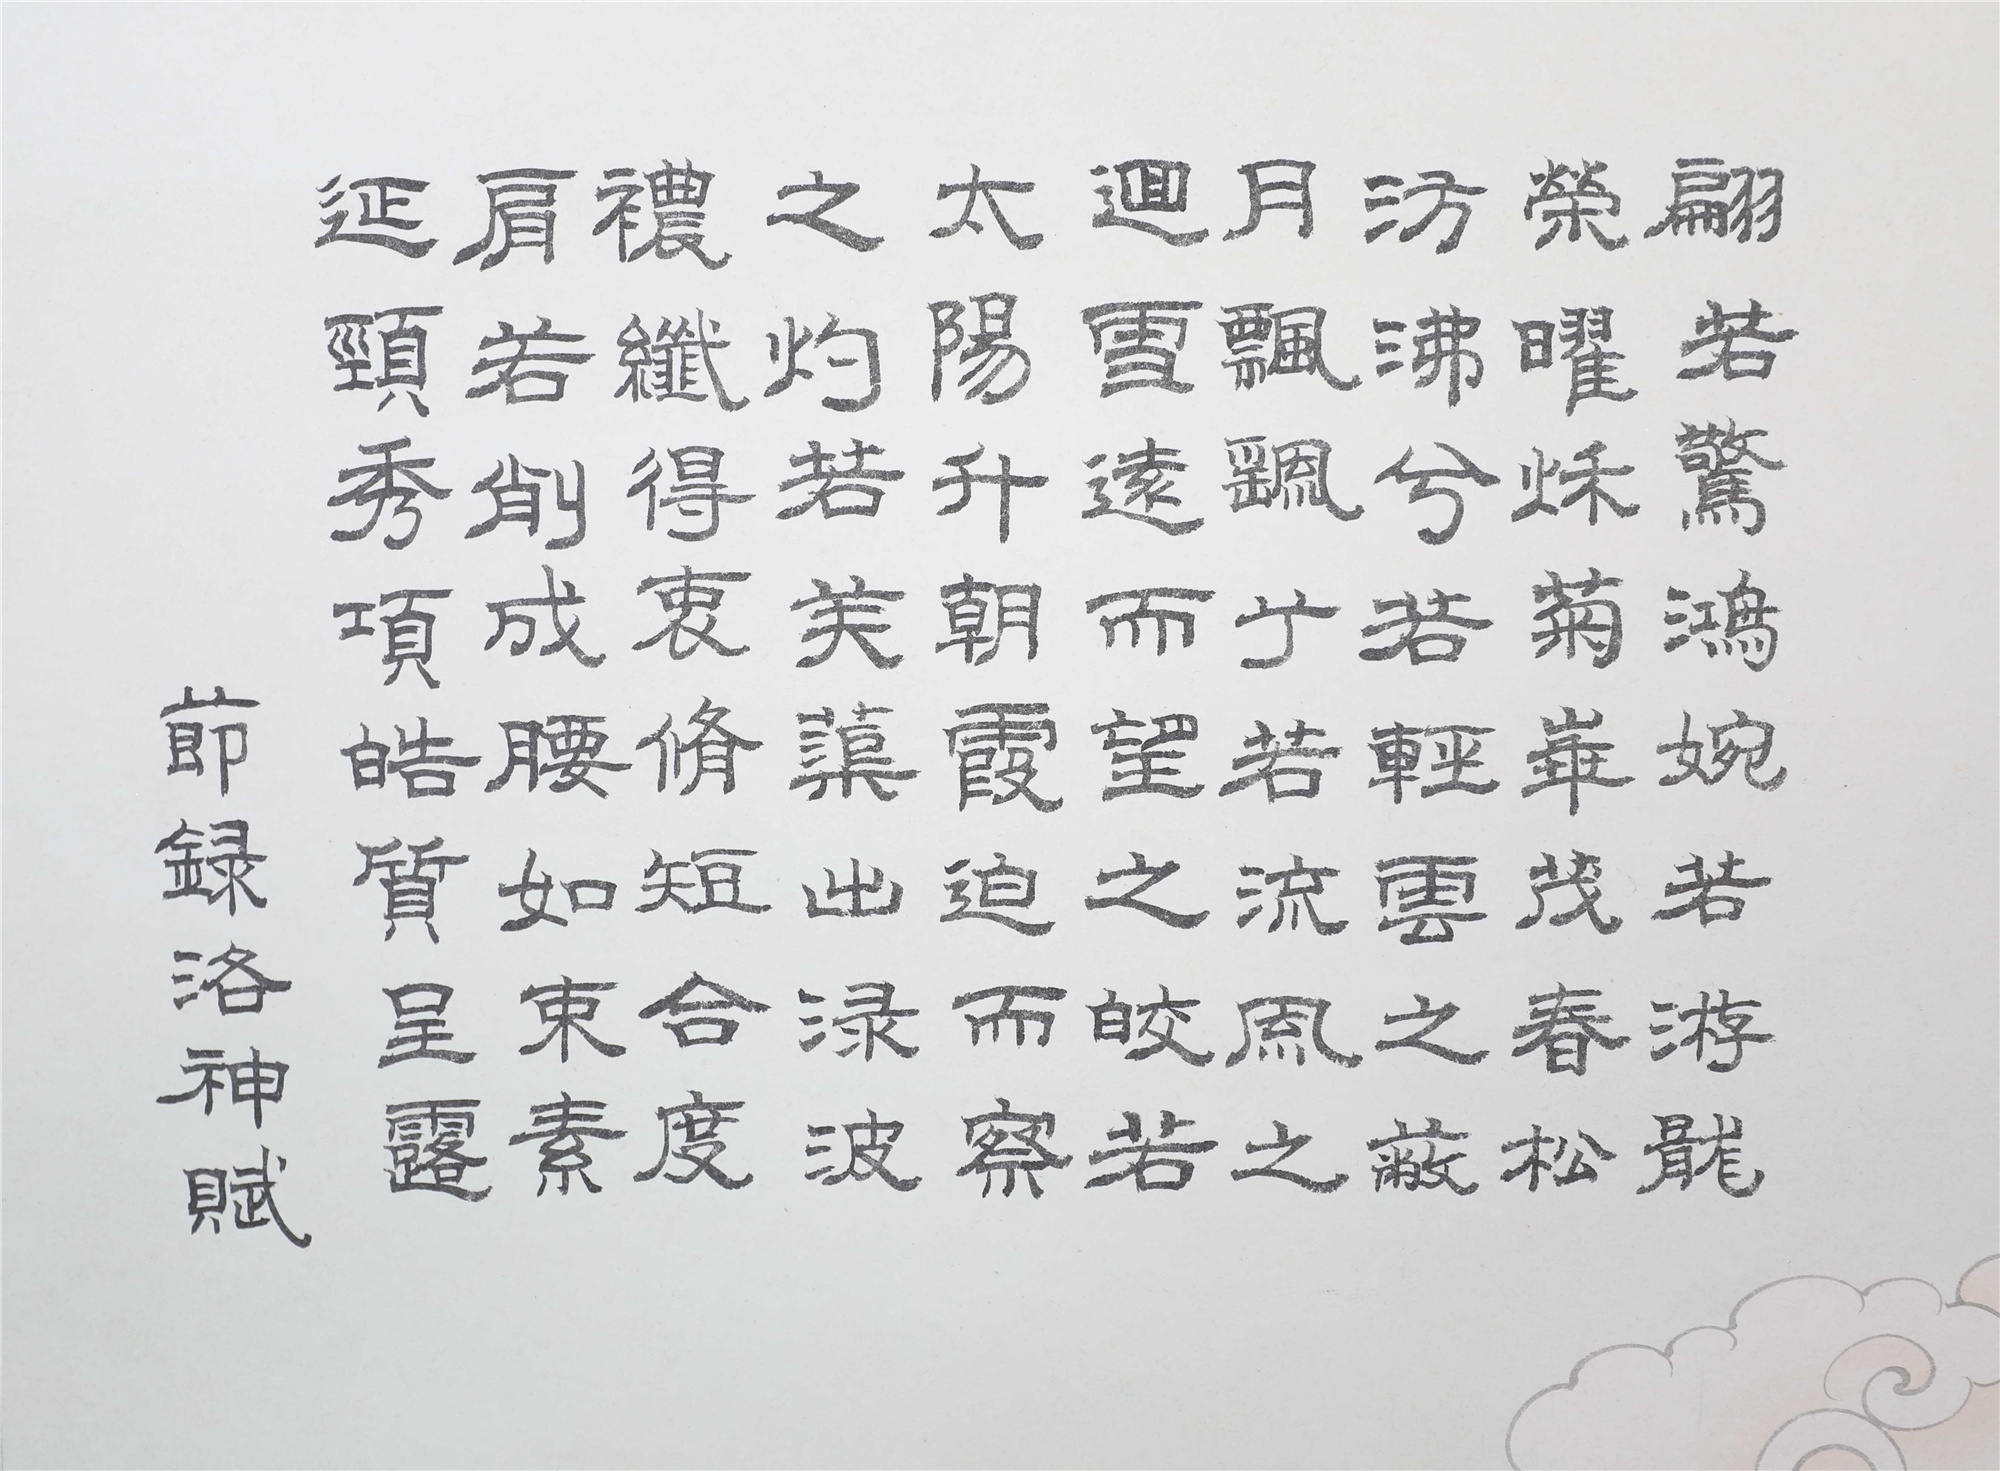 翩若驚鴻婉若游龍
榮曜秌菊華茂春松
汸沸兮若輕雲之蔽
月飄颻兮若流風之
迴雪遠而望之皎若
太陽升朝霞迫而察
之灼若芙蕖出淥波
襛纖得衷脩短合度
肩若削成腰如束素
延頸秀項皓質呈露
節録洛神賦